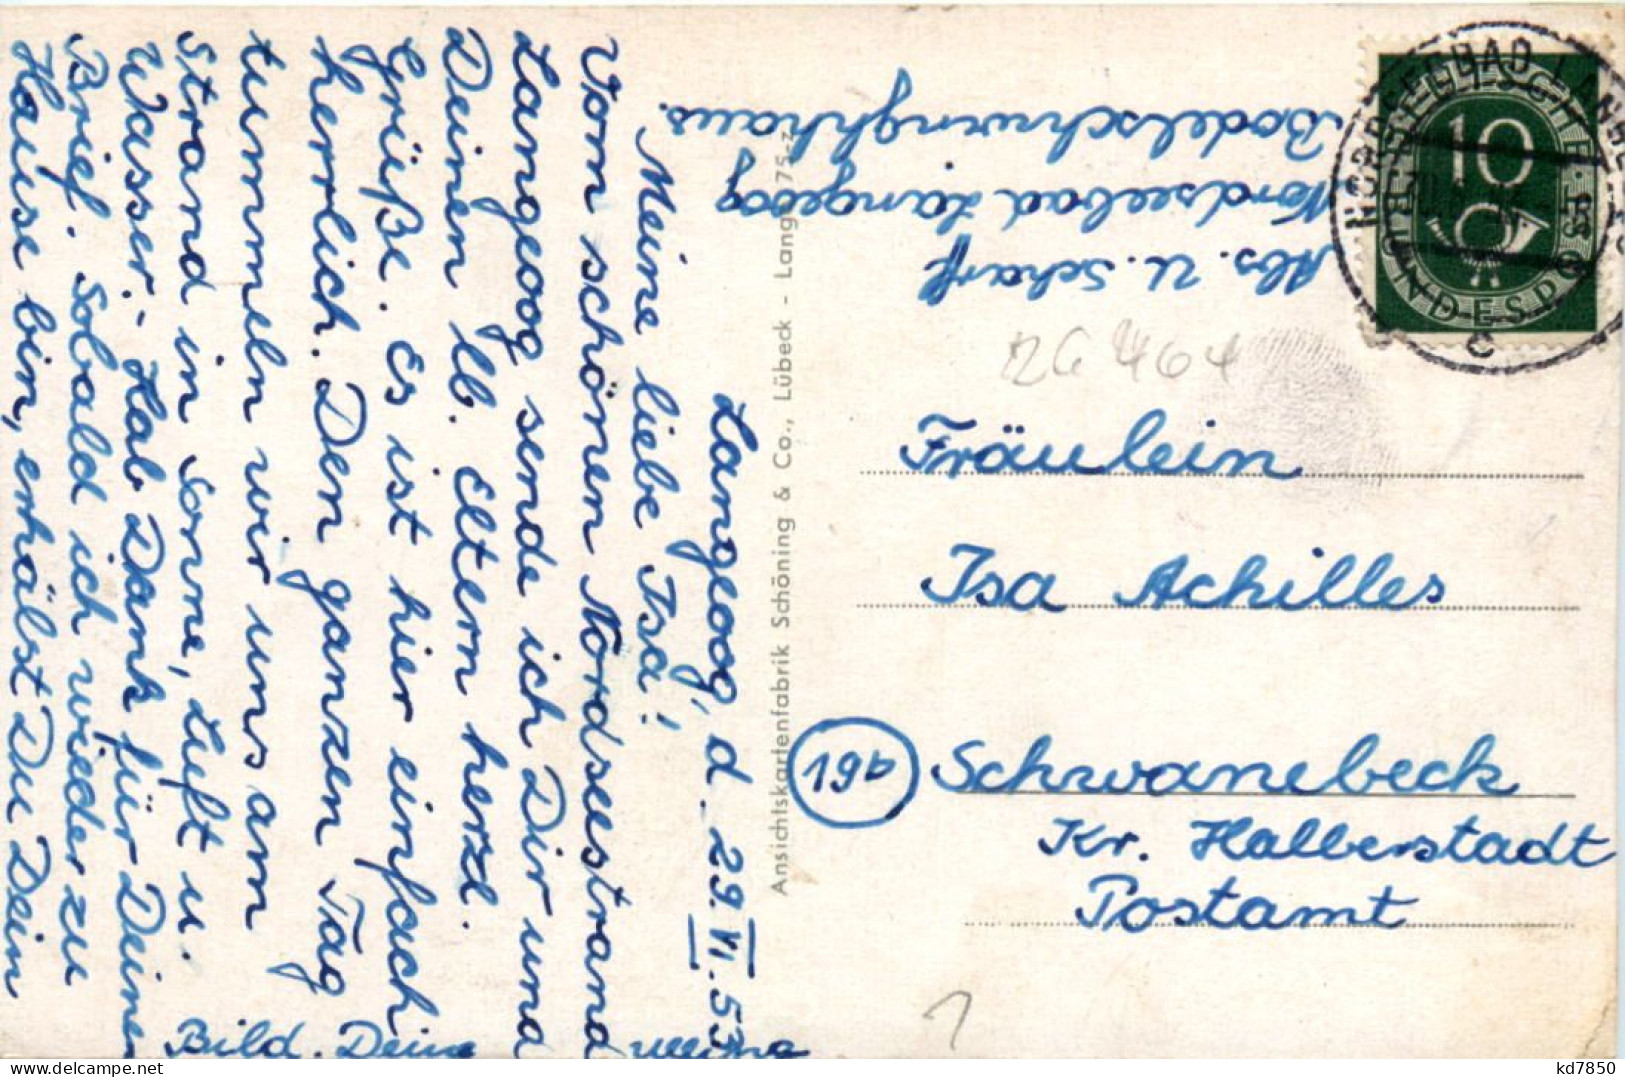 Langeoog, d. 29. VI. 53
Meine liebe Isa!
Vom schönen Nordseestrand
Langeoog sende ich Dir und
Deinen lb. Eltern herzl.
Grüße. Es ist hier einfach
herrlich. Den ganzen Tag
tummeln wir uns am
Strand in Sonne, Luft u.
Wasser. - Hab Dank für Deinen
Brief. Sobald ich wieder zu
Hause bin, erhälst Du Dein
Bild. Deine
Ansichtskartenfabrik Schöning & Co., Lübeck - Lang 75-z
Abs. U. Scharff
Nordseebad Langeoog
Bodelschwinghhaus.
NORDSEEBAD LANGEOOG
C
DEUTSCHE BUNDESPOST
10
26 464
Fräulein
Isa Achilles
19b Schwanebeck
Kr. Halberstadt
Postamt
1
kd7850